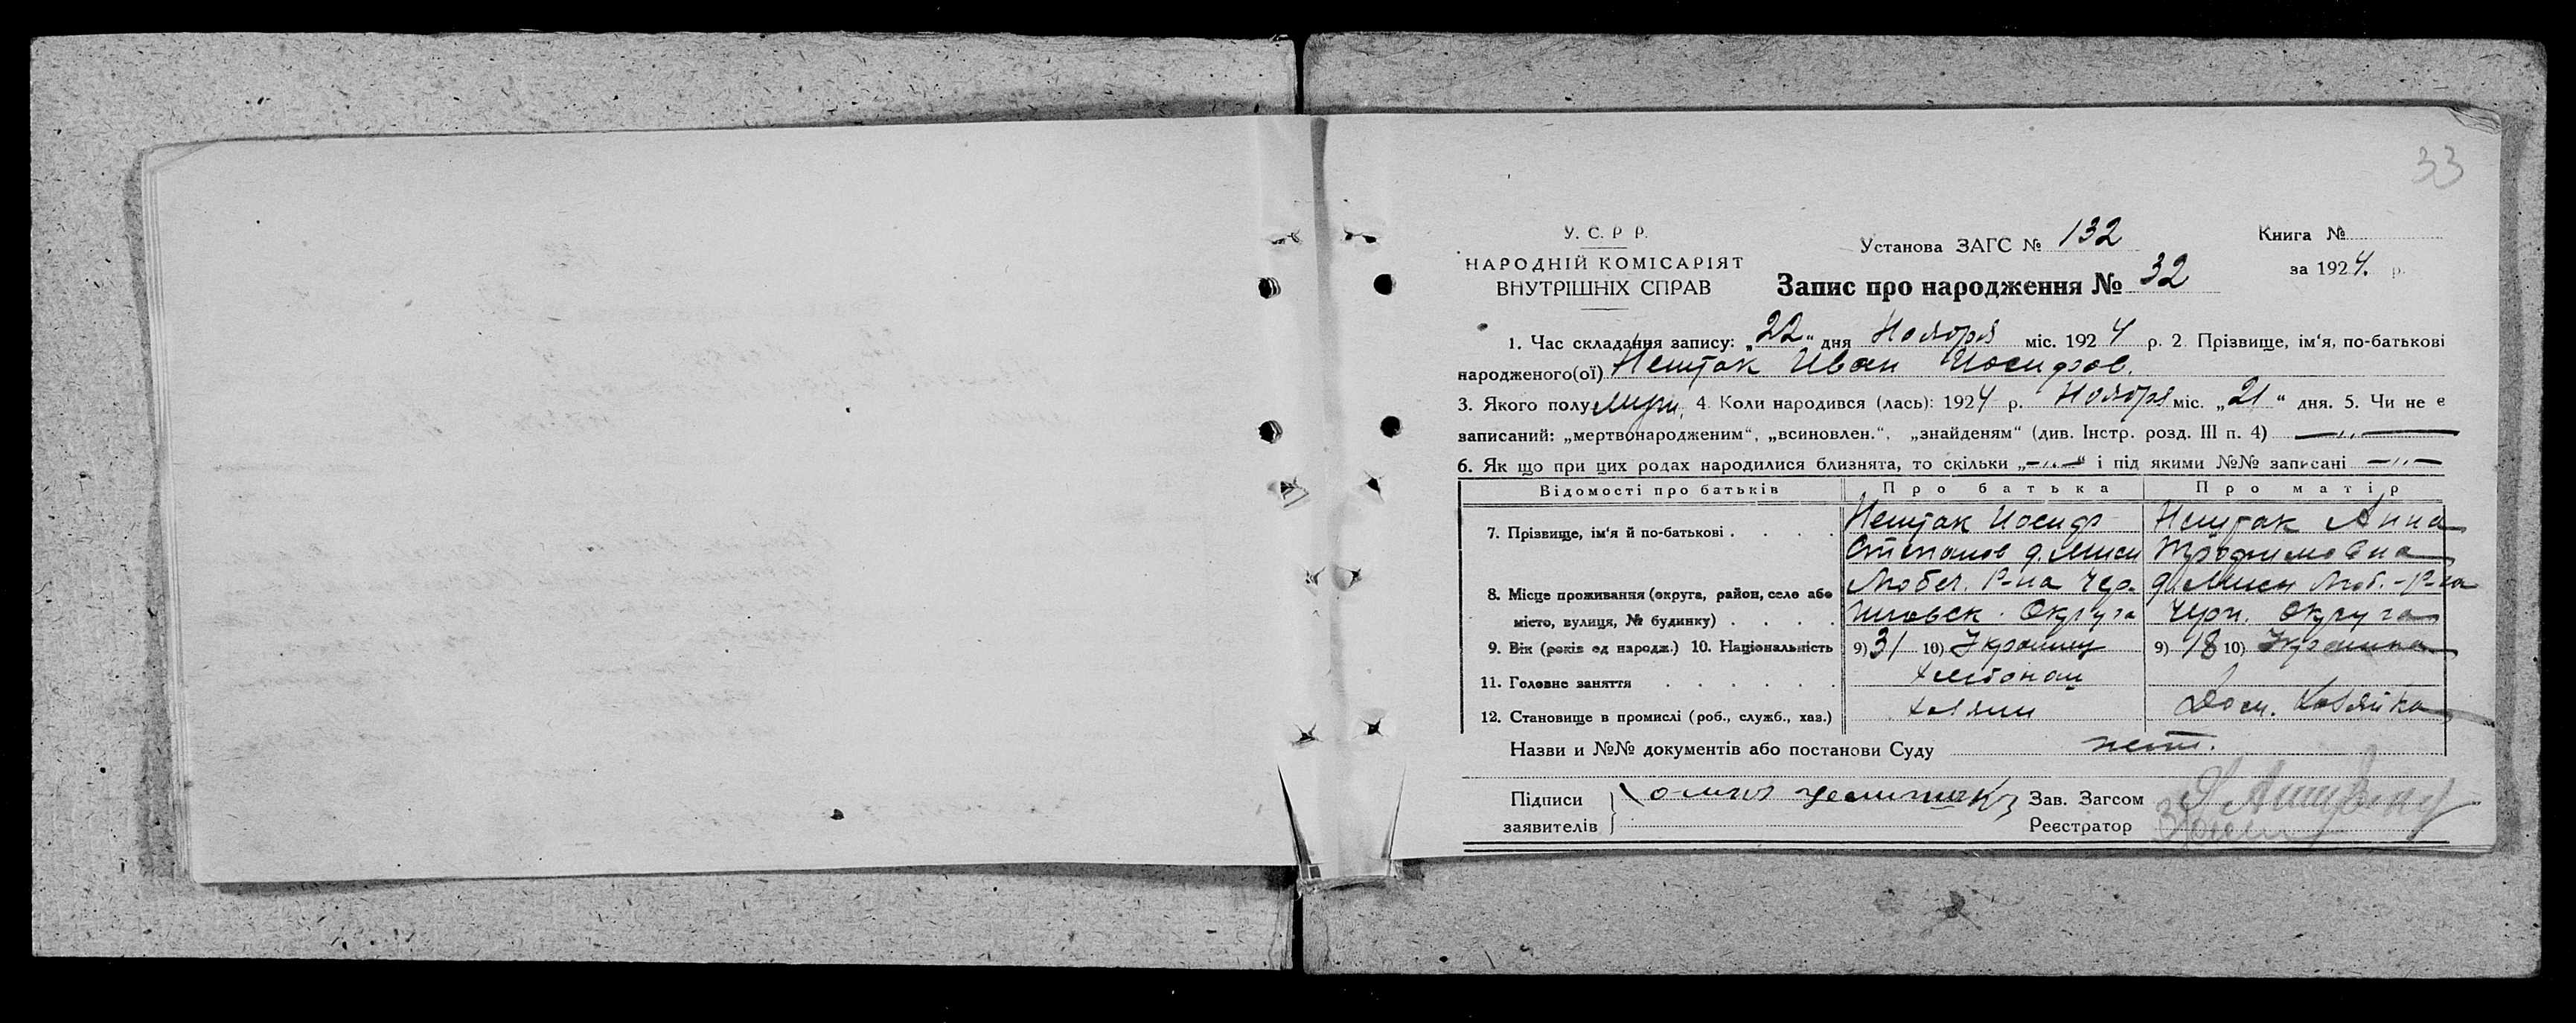 33
У. С. Р Р.
НАРОДНІЙ КОМІСАРІЯТ
ВНУТРІШНІХ СПРАВ
Установа ЗАГС № 132
Книга №
за 1924. р.
Запис про народження № 32
1. Час складання запису: „22“ дня Ноября міс. 1924 р. 2. Прізвище, ім‘я, по-батькові
народженого(ої) Нештак Иван Иосифов.
3. Якого полу 4. Коли народився (лась): 1924 р. Ноября міс. „21“ дня. 5. Чи не є
записаний: „мертвонародженим“, „всиновлен.“, „знайденям“ (див. Інстр. розд. III п. 4) —„—
6. Як що при цих родах народилися близнята, то скільки „—„—“ і під якими №№ записані —„—
Відомості про батьків Про батька Про матір
7. Прізвище, ім‘я й по-батькові Нештак Иосиф Нештак Анна
Степанов д. Трофимовна
8. Місце проживання (округа, район, село або Любеч. Р-на Чер- д. Люб. Р-на
місто, вулиця, № будинку) ниговск. Округа Черн. Округа
9. Вік (років од народж.) 10. Національність 9) 31 10) Украинец 9) 18 10) Украинка
11. Головне заняття хлебопаш
12. Становище в промислі (роб., служб., хаз.) хозяин Дом. Хозяйка
Назви и №№ документів або постанови Суду нет.
Підписи
заявителів
Зав. Загсом
Реєстратор